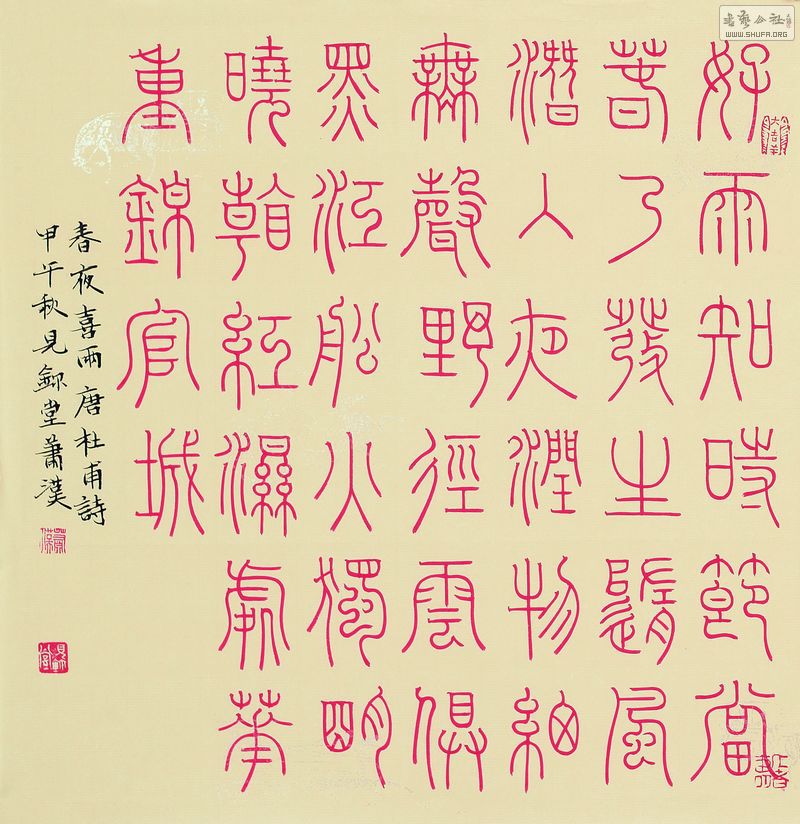 書藝公社
WWW.SHUFA.ORG
好雨知時節當
春乃發生隨風
潛入夜潤物細
無聲野徑雲俱
黑江船火獨明
曉看紅濕處華
重錦官城
春夜喜雨唐杜甫詩
甲午秋見堂蕭漢
大吉羊